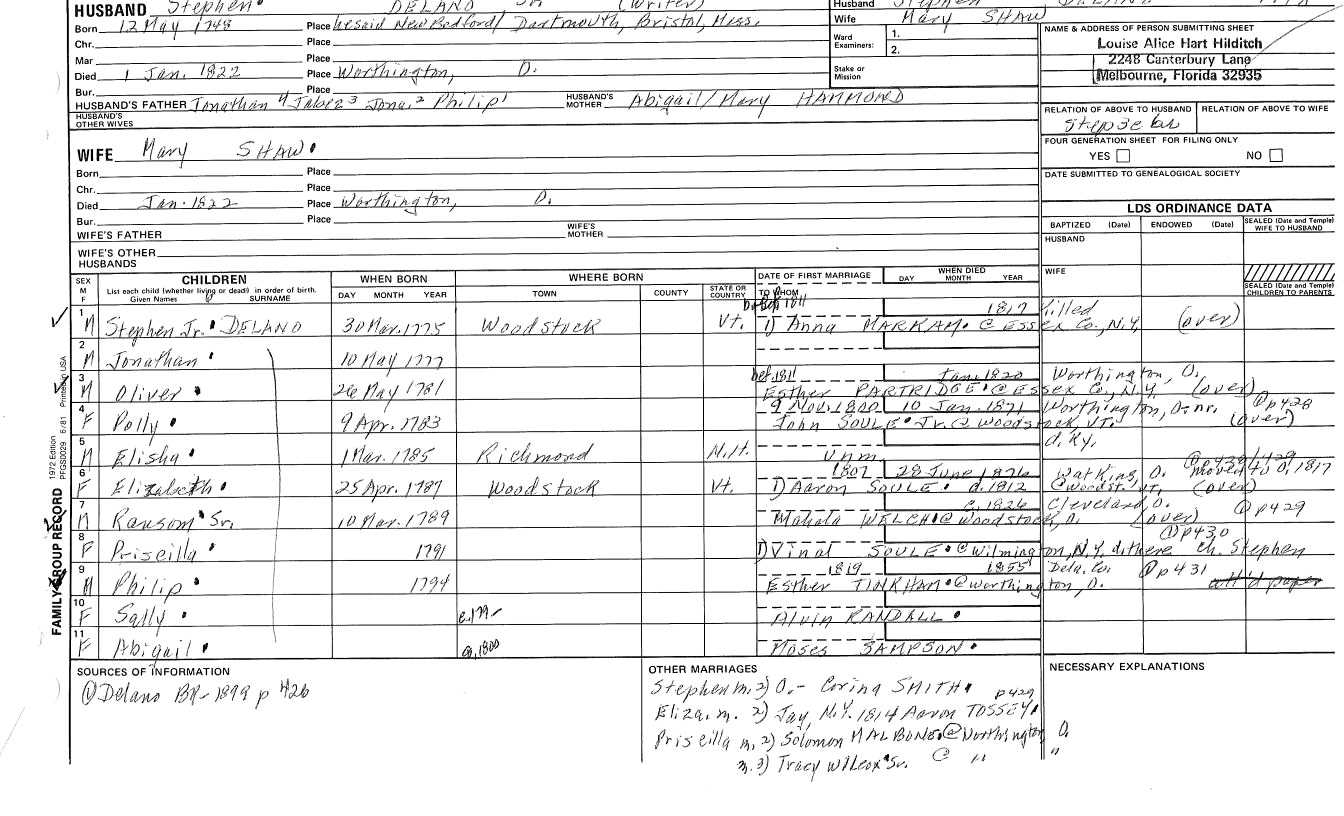 HUSBAND Stephen DELANO Sr. (Writer)
Born 12 May 1748 Place he said New Bedford/ Dartmouth, Bristol, Mass.
Chr. Place
Mar Place
Died 1 Jan. 1822 Place Worthington, O.
Bur. Place
HUSBAND'S FATHER Jonathan 4 Jabez 3 Jona. 2 Philip 1 HUSBAND'S MOTHER Abigail/Mary HAMMOND
HUSBAND'S OTHER WIVES
Husband Stephen DELANO
Wife Mary SHAW
Ward Examiners: 1.
2.
Stake or Mission
NAME & ADDRESS OF PERSON SUBMITTING SHEET
Louise Alice Hart Hilditch
2248 Canterbury Lane
Melbourne, Florida 32935
RELATION OF ABOVE TO HUSBAND RELATION OF ABOVE TO WIFE
FOUR GENERATION SHEET FOR FILING ONLY
YES NO
DATE SUBMITTED TO GENEALOGICAL SOCIETY
WIFE Mary SHAW
Born Place
Chr. Place
Died Jan. 1822 Place Worthington, O.
Bur. Place
WIFE'S FATHER WIFE'S MOTHER
WIFE'S OTHER HUSBANDS
LDS ORDINANCE DATA
BAPTIZED (Date) ENDOWED (Date) SEALED (Date and Temple) WIFE TO HUSBAND
HUSBAND
WIFE
SEALED (Date and Temple) CHILDREN TO PARENTS
SEX M F
CHILDREN
List each child (whether living or dead) in order of birth.
Given Names SURNAME
WHEN BORN
DAY MONTH YEAR
WHERE BORN
TOWN COUNTY STATE OR COUNTRY
DATE OF FIRST MARRIAGE
TO WHOM
WHEN DIED
DAY MONTH YEAR
1 bef. 1811 1817 killed
M Stephen Jr. DELANO 30 Mar. 1775 Woodstock Vt. 1) Anna MARKAM @ ESSEX Co., N.Y. (over)
2
M Jonathan 10 May 1777
3 bef. 1811 Jan. 1820 Worthington, O.
M Oliver 26 May 1781 Esther PARTRIDGE @ Essex Co., N.Y. (over)
4 9 Nov. 1800 10 Jan. 1871 Worthington, O. nr. @ p428
F Polly 9 Apr. 1783 John SOULE Jr. @ Woodstock, VT. (over)
5 d. Ky.
M Elisha 1 Mar. 1785 Richmond N.H. unm.
6 1807 28 June 1826 Watkins, O. moved to O. 1817
F Elizabeth 25 Apr. 1787 Woodstock Vt. 1) Aaron SOULE d. 1812 @ Woodst. Vt. (over)
7 c. 1826 Cleveland, O. @ p429
M Ransom Sr. 10 Mar. 1789 Mahala WELCH @ Woodstock, O. (over)
8 @ p430
F Priscilla 1791 1) Vinal SOULE @ Wilmington, N.Y. d. there ch. Stephen
9 1819 1855 Dela. Co. @ p431
M Philip 1794 Esther TINKHAM @ Worthington, O. att'd paper
10
F Sally c. 179- Alvin RANDALL
11
F Abigail ca. 1800 Moses SAMPSON
SOURCES OF INFORMATION
① Delano BR- 1899 p 426
OTHER MARRIAGES
Stephen m. 2) O.- Corina SMITH p429
Eliza. m. 2) Jay, N.Y. 1814 Aaron TOSSEY
Priscilla m. 2) Solomon MALBONE @ Worthington O.
m. 3) Tracy Wilcox Sr. @ " "
NECESSARY EXPLANATIONS
FAMILY GROUP RECORD 1972 Edition PFGS0029 6/81 Printed in USA